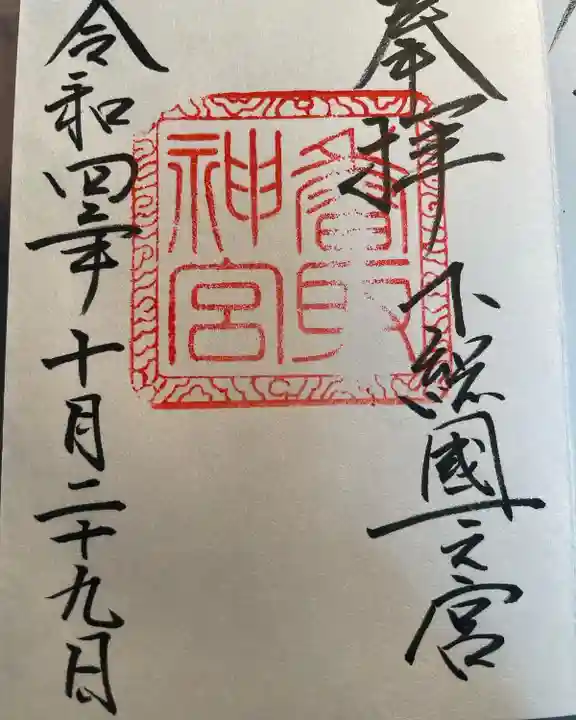 奉拝 下総國一之宮
香取神宮
令和四年十月二十九日